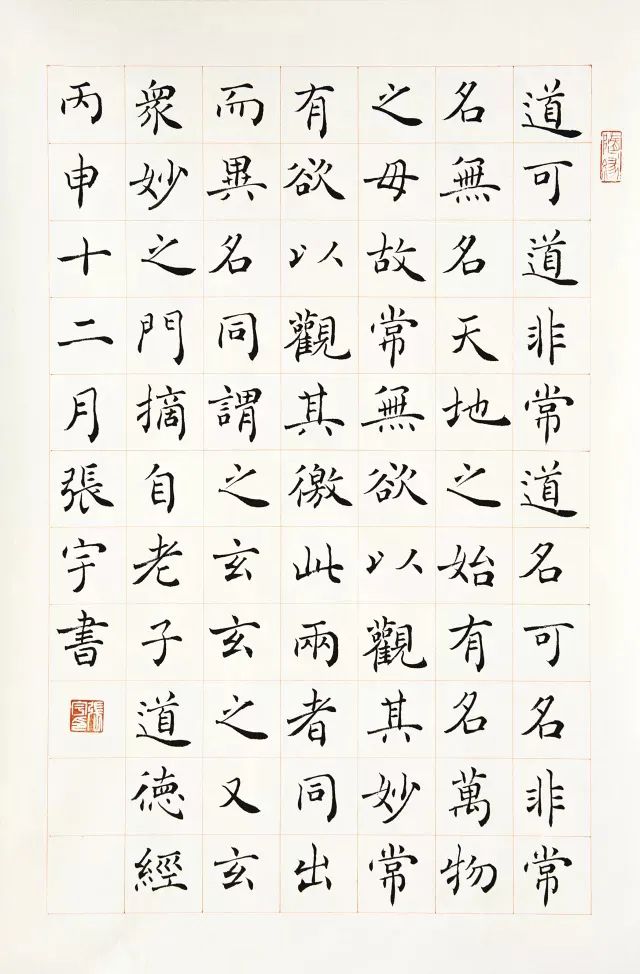 道可道非常道名可名非常
名無名天地之始有名萬物
之毋故常無欲以觀其妙常
有欲以觀其徼此兩者同出
而異名同謂之玄玄之又玄
衆妙之門摘自老子道德經
丙申十二月張宇書